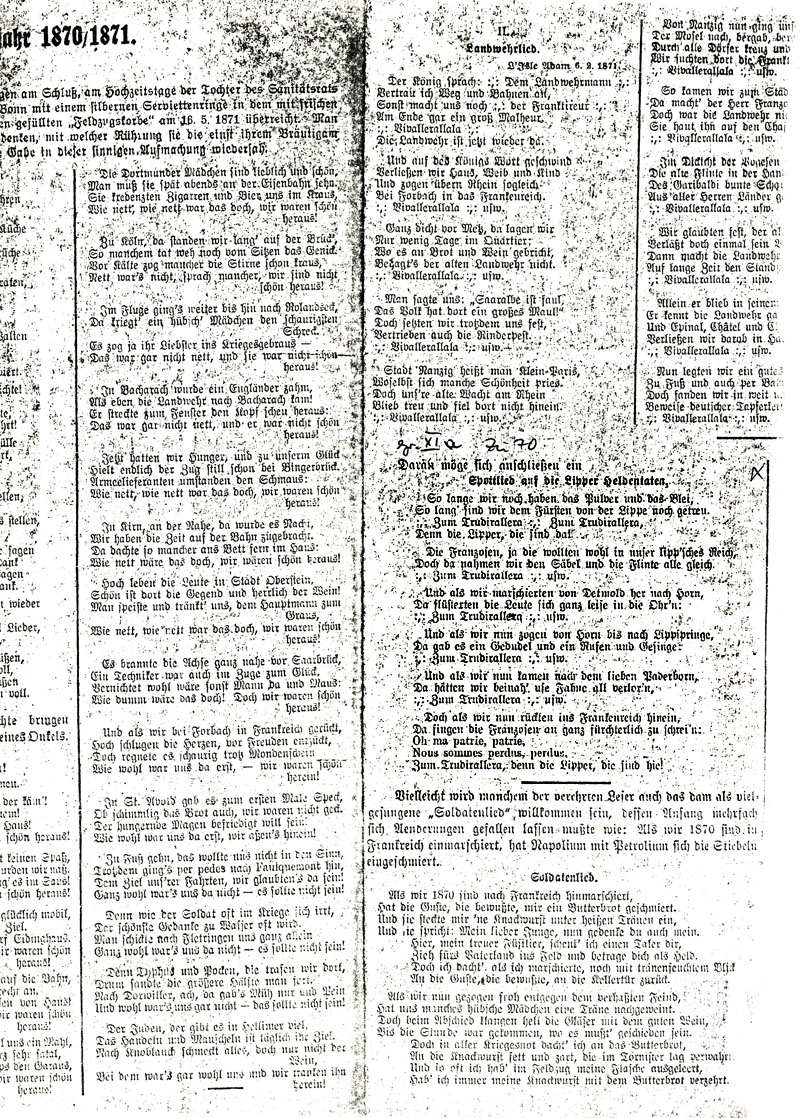 ahr 1870/1871.
gen am Schluß, am Hochzeitstage der Tochter des Sanitätsrats
Bonn mit einem silbernen Serviettenringe in dem mit frischen
en gefüllten „Feldzugskorbe“ am 16. 5. 1871 überreicht. Man
denken, mit welcher Rührung sie die einst ihrem Bräutigam
Gabe in dieser sinnigen Aufmachung wiedersah.
Die Dortmunder Mädchen sind lieblich und schön,
Man muß sie spät abends an der Eisenbahn sehn.
Sie kredenzten Zigarren und Bier uns im Kraus,
Wie nett, wie nett war das doch, wir waren schön
heraus!
Zu Köln, da standen wir lang' auf der Brück',
So manchem tat weh noch vom Sitzen das Genick.
Vor Kälte zog mancher die Stirne schon kraus,
Nett war's nicht, sprach mancher, wir sind nicht
schön heraus!
Im Fluge ging's weiter bis hin nach Rolandseck,
Da kriegt' ein hübsch' Mädchen den schaurigsten
Schreck.
Es zog ja ihr Liebster ins Kriegesgebraus —
Das war gar nicht nett, und sie war nicht schön
heraus!
In Bacharach wurde ein Engländer zahm,
Als eben die Landwehr nach Bacharach kam!
Er steckte zum Fenster den Kopf scheu heraus:
Das war gar nicht nett, und er war nicht schön
heraus!
Jetzt hatten wir Hunger, und zu unserm Glück
Hielt endlich der Zug still schon bei Bingerbrück.
Armeelieferanten umstanden den Schmaus:
Wie nett, wie nett war das doch, wir waren schön
heraus!
In Kirn, an der Nahe, da wurde es Nacht,
Wir haben die Zeit auf der Bahn zugebracht.
Da dachte so mancher ans Bett fern im Haus:
Wie nett wäre das doch, wir wären schön heraus!
Hoch leben die Leute in Stadt Oberstein,
Schön ist dort die Gegend und herrlich der Wein!
Man speiste und tränkt' uns, dem Hauptmann zum
Graus,
Wie nett, wie nett war das doch, wir waren schön
heraus!
Es brannte die Achse ganz nahe vor Saarbrück,
Ein Techniker war auch im Zuge zum Glück.
Vernichtet wohl wäre sonst Mann da und Maus:
Wie dumm wäre das doch! Doch wir waren schön
heraus!
Und als wir bei Forbach in Frankreich gerückt,
Hoch schlugen die Herzen, vor Freuden entzückt,
Doch regnete es schaurig trotz Mondenschein
Wie wohl war uns da erst, — wir waren schön
herein!
In St. Avold gab es zum ersten Male Speck,
Ob schimmlig das Brot auch, wir waren nicht geck.
Der hungernde Magen befriedigt will sein:
Wie wohl war uns da erst, wir aßen's hinein!
Zu Fuß gehn, das wollte uns nicht in den Sinn,
Trotzdem ging's per pedes nach Faulquemont hin,
Dem Ziel uns'rer Fahrten, wir glaubten's da sein!
Ganz wohl war's uns da nicht — es sollte nicht sein!
Denn wie der Soldat oft im Kriege sich irrt,
Der schönste Gedanke zu Wasser oft wird.
Man schickte nach Fletringen uns ganz allein
Ganz wohl war's uns da nicht — es sollte nicht sein!
Denn Typhus und Pocken, die trafen wir dort,
Drum sandte die größere Hälfte man fort.
Nach Dorwiller, ach, da gab's Müh nur und Pein
Und wohl war's uns gar nicht — das sollte nicht sein!
Der Juden, der gibt es in Hellimer viel,
Das Handeln und Mauscheln ist täglich ihr Ziel.
Nach Knoblauch schmeckt alles, doch nur nicht der
Wein,
Bei dem war's gar wohl uns und wir tranken ihn
herein!
II.
Landwehrlied.
L'Isle Adam 6. 2. 1871.
Der König sprach: :,: Dem Landwehrmann :,:
Vertrau ich Weg und Bahnen an,
Sonst macht uns noch :,: der Franktireur :,:
Am Ende gar ein groß Malheur.
:,: Vivallerallala :,:
Die Landwehr ist jetzt wieder da.
Und auf des Königs Wort geschwind
Verließen wir Haus, Weib und Kind
Und zogen übern Rhein sogleich
Bei Forbach in das Frankenreich.
:,: Vivallerallala :,: usw.
Ganz dicht vor Metz, da lagen wir
Nur wenig Tage im Quartier;
Wo es an Brot und Wein gebricht,
Behagt's der alten Landwehr nicht.
:,: Vivallerallala :,: usw.
Man sagte uns: „Saaralbe ist faul,
Das Volk hat dort ein großes Maul!“
Doch setzten wir trotzdem uns fest,
Vertrieben auch die Rinderpest.
:,: Vivallerallala :,: usw.
Stadt Nanzig heißt man Klein-Paris,
Woselbst sich manche Schönheit pries.
Doch uns're alte Wacht am Rhein
Blieb treu und fiel dort nicht hinein.
:,: Vivallerallala :,: usw.
XI a Zu 70
Daran möge sich anschließen ein
Spottlied auf die Lipper Heldentaten.
So lange wir noch haben das Pulver und das Blei,
So lang' sind wir dem Fürsten von der Lippe noch getreu.
:,: Zum Trudirallera :,: Zum Trudirallera,
Denn die Lipper, die sind da!
Die Franzosen, ja die wollten wohl in unser lipp'sches Reich,
Doch da nahmen wir den Säbel und die Flinte alle gleich.
:,: Zum Trudirallera :,: usw.
Und als wir marschierten von Detmold her nach Horn,
Da flüsterten die Leute sich ganz leise in die Ohr'n:
:,: Zum Trudirallera :,: usw.
Und als wir nun zogen von Horn bis nach Lippspringe,
Da gab es ein Gedudel und ein Rufen und Gesinge:
:,: Zum Trudirallera :,: usw.
Und als wir nun kamen nach dem lieben Paderborn,
Da hätten wir beinah' use Fahne all verlor'n,
:,: Zum Trudirallera :,: usw.
Doch als wir nun rückten ins Frankenreich hinein,
Da fingen die Franzosen an ganz fürchterlich zu schrei'n:
Oh ma patrie, patrie,
Nous sommes perdus, perdus,
Zum Trudirallera, denn die Lipper, die sind hie!
Vielleicht wird manchem der verehrten Leser auch das dam als viel-
gesungene „Soldatenlied“ willkommen sein, dessen Anfang mehrfach
sich Aenderungen gefallen lassen mußte wie: Als wir 1870 sind in
Frankreich einmarschiert, hat Napolium mit Petrolium sich die Stiebeln
eingeschmiert.
Soldatenlied.
Als wir 1870 sind nach Frankreich hinmarschiert,
Hat die Guste, die bewußte, mir ein Butterbrot geschmiert.
Und sie steckte mir 'ne Knackwurst unter heißen Tränen ein,
Und sie spricht: Mein lieber Junge, nun gedenke du auch mein.
Hier, mein treuer Füsilier, schenk' ich einen Taler dir,
Zieh fürs Vaterland ins Feld und betrage dich als Held.
Doch ich dacht', als ich marschierte, noch mit tränenfeuchtem Blick
An die Guste, die bewußte, an die Kellertür zurück.
Als wir nun gezogen froh entgegen dem verhaßten Feind,
Hat uns manches hübsche Mädchen eine Träne nachgeweint.
Doch beim Abschied klangen hell die Gläser mit dem guten Wein,
Bis die Stunde war gekommen, wo es mußt' geschieden sein.
Doch in aller Kriegesnot dacht' ich an das Butterbrot,
An die Knackwurst fett und zart, die im Tornister lag verwahrt.
Und so oft ich hab' im Feldzug meine Flasche ausgeleert,
Hab' ich immer meine Knackwurst mit dem Butterbrot verzehrt.
Von Nanzig nun ging un
Der Mosel nach, bergab, ber
Durch alle Dörfer kreuz und
Wir suchten dort die Frankt
:,: Vivallerallala :,: usw.
So kamen wir zum Städ
Da macht' der Herr Franzo
Doch war die Landwehr ni
Sie haut ihn auf den Cha
:,: Vivallerallala :,: usw.
Im Dickicht der Vogesen
Die alte Flinte in der Han
Des Garibaldi bunte Scha
Aus aller Herren Länder g
:,: Vivallerallala :,: usw.
Wir glaubten fest, der al
Verläßt doch einmal sein
Dann macht die Landwehr
Auf lange Zeit den Stand
:,: Vivallerallala :,: usw.
Allein er blieb in seinem
Er kennt die Landwehr ga
Und Epinal, Châtel und C
Verließen wir darob in Ha
:,: Vivallerallala :,: usw.
Nun legten wir ein gutes
Zu Fuß und auch per Ba
Doch fanden wir in weit u
Beweise deutscher Tapferkei
:,: Vivallerallala :,: usw.